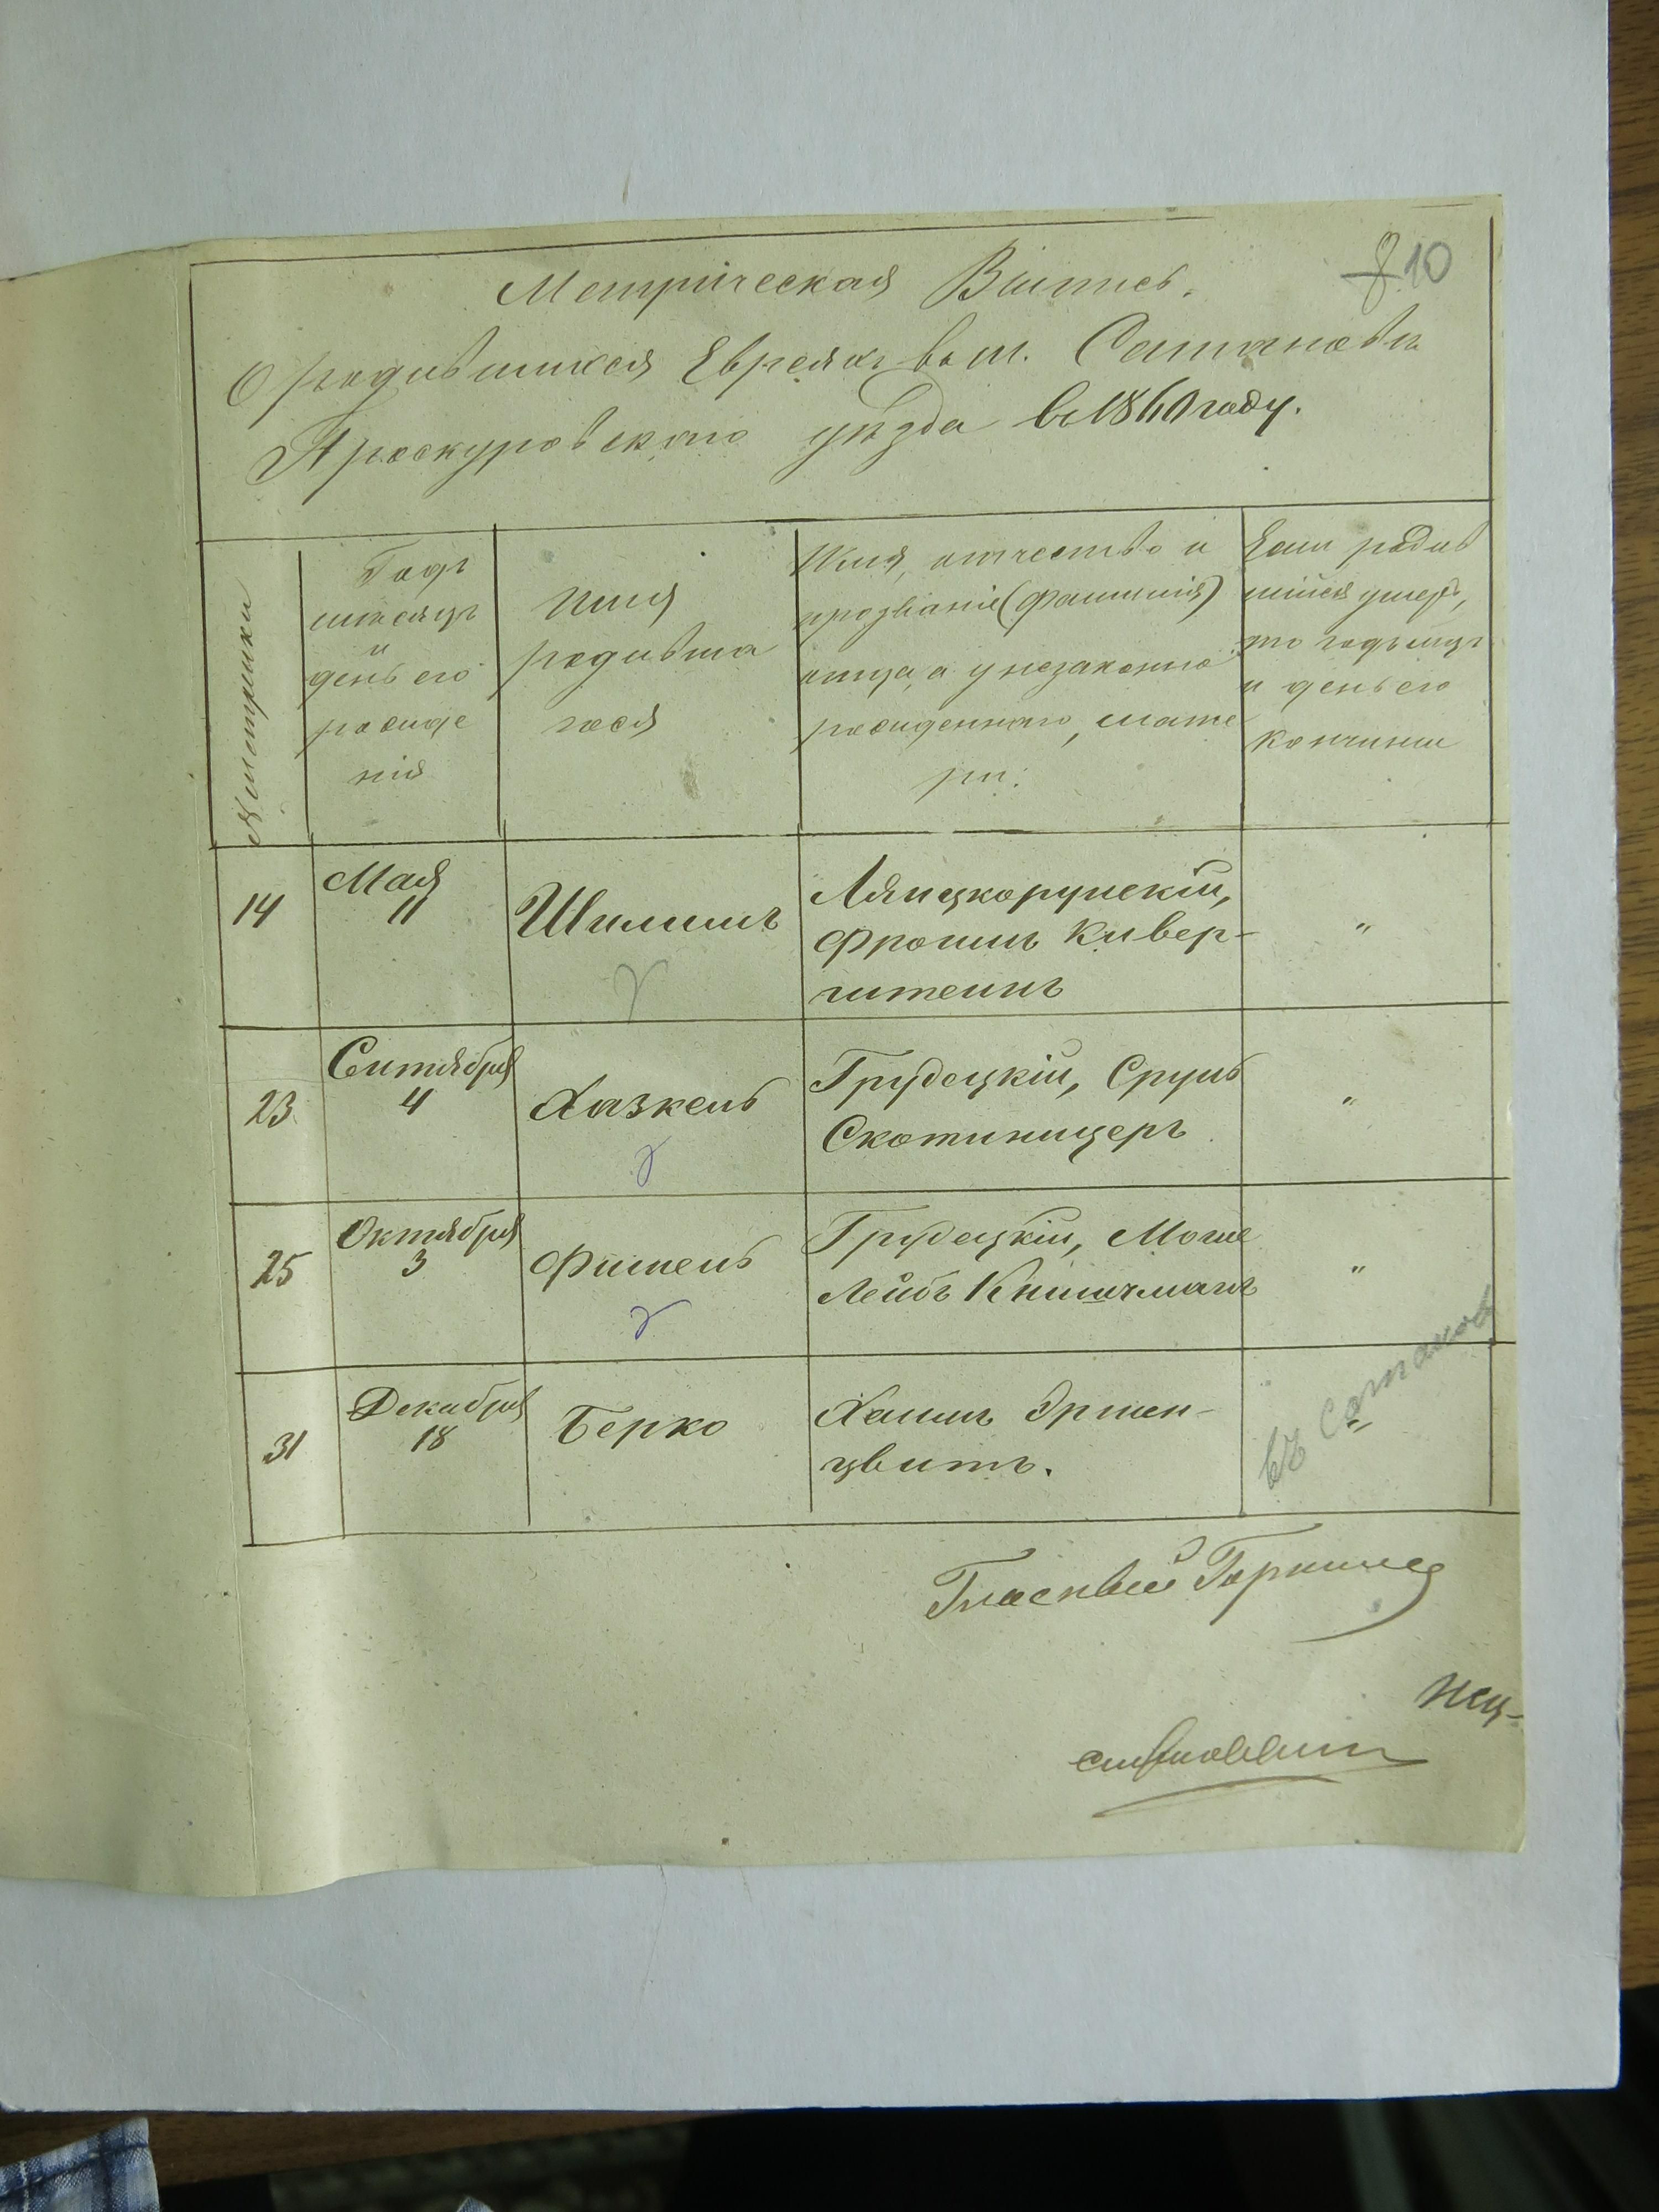 8 10
Метрическая Выпись.
О родившихся Евреяхъ въ м. Сатановѣ
Проскуровскаго уѣзда въ 1860 году.
№ метрики
Годъ
мѣсяцъ
и
день его
рожде
нія
Имя
родивша
гося
Имя, отчество и
прозваніе (фамилія)
отца, а у незаконно
рожденнаго, мате
ри.
Если родив
шійся умеръ,
то годъ мцъ
и день его
кончины
14
Мая
11
Шлиминъ
Лянцкорунскій,
Фроимъ Кивер-
штейнъ
"
23
Сентября
4
Хазкель
Грудецкій, Сруль
Скотиницеръ
"
25
Октября
3
Фишель
Грудецкій, Моше
Лейбъ Книшманъ
"
31
Декабря
18
Берко
Хаимъ Эрлен-
цвитъ.
"
въ Сатановѣ
Гласный